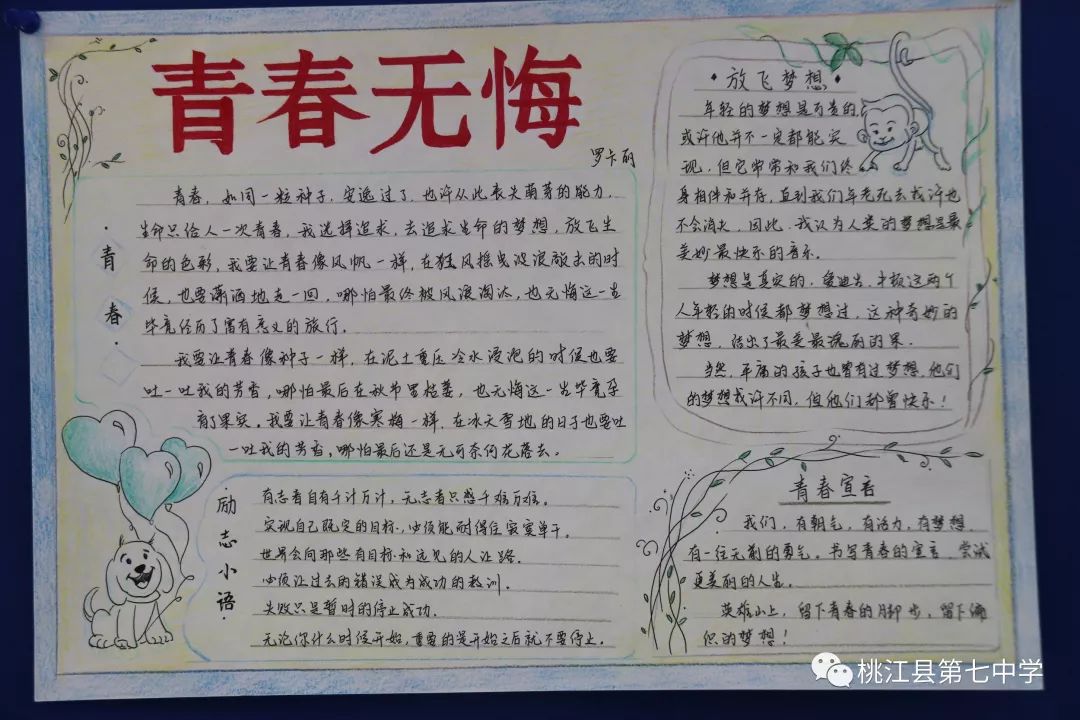 青春无悔
罗卡丽
·青春·
青春，如同一粒种子，安逸过了，也许从此丧失萌芽的能力，
生命只给人一次青春，我选择追求，去追求生命的梦想，放飞生
命的色彩，我要让青春像风帆一样，在狂风摇曳浪敲击的时
候，也要潇洒地走一回，哪怕最终被风浪淘汰，也无悔这一生
毕竟经历了富有意义的旅行。
我要让青春像种子一样，在泥土重压冷水浸泡的时候也要
吐一吐我的芳香，哪怕最后在秋节里枯萎，也无悔这一生毕竟孕
育了果实。我要让青春像寒梅一样，在冰天雪地的日子也要吐
一吐我的芳香，哪怕最后还是无可奈何花落去。
·励志小语·
有志者自有千计万计，无志者只感千难万难。
实现自己既定的目标，必须能耐得住寂寞单干。
世界会向那些有目标和远见的人让路。
必须让过去的错误成为成功的教训。
失败只是暂时的停止成功。
无论你什么时候开始，重要的是开始之后就不要停止。
·放飞梦想·
年轻的梦想是可贵的，
或许他并不一定都能实
现，但它常常和我们终
身相伴和并存，直到我们年老死去或许也
不会消失，因此，我认为人类的梦想是最
美妙最快乐的音乐。
梦想是真实的，爱迪生，卡顿这两个
人年轻的时候都梦想过，这种奇妙的
梦想，结出了最美最瑰丽的果。
当然，平庸的孩子也曾有过梦想，他们
的梦想或许不同，但他们都曾快乐！
青春宣言
我们，有朝气，有活力，有梦想，
有一往无前的勇气。书写青春的宣言，尝试
更美丽的人生。
英雄山上，留下青春的脚步，留下俩
似的梦想！
桃江县第七中学